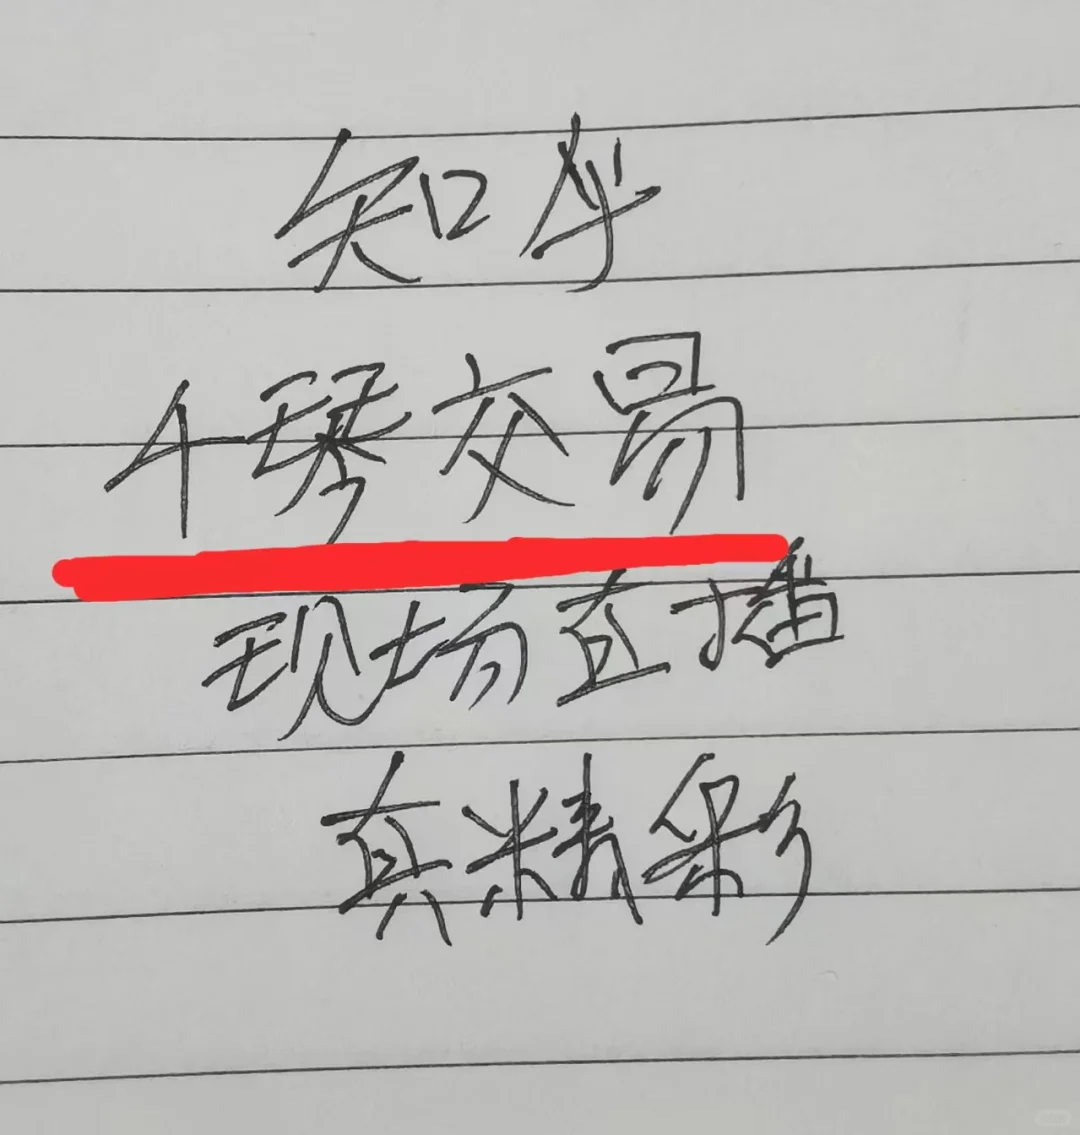 知乎
交易
现场直播
真精彩